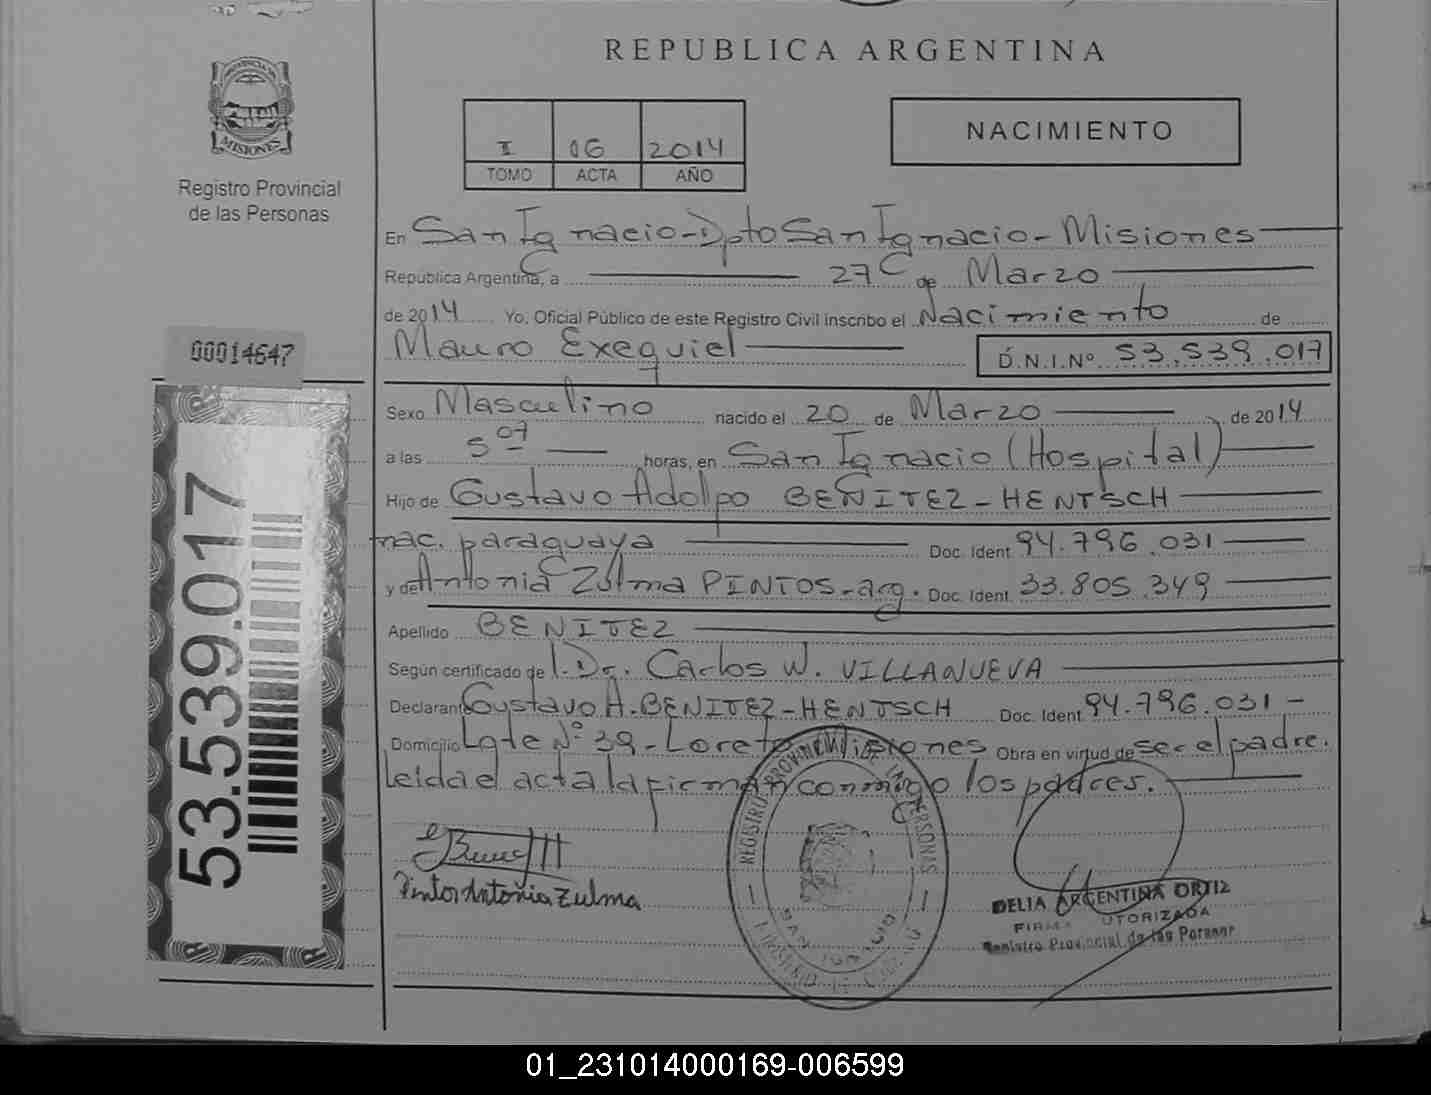 REPUBLICA ARGENTINA
MISIONES
Registro Provincial
de las Personas
I 06 2014
TOMO ACTA AÑO
NACIMIENTO
En San Ignacio-Dpto San Ignacio-Misiones
República Argentina, a 27 de Marzo
de 2014 Yo, Oficial Público de este Registro Civil inscribo el Nacimiento de
Mauro Exequiel D.N.I.Nº 53.539.017
00014647
53.539.017
Sexo Masculino nacido el 20 de Marzo de 2014
a las 5 07 horas, en San Ignacio (Hospital)
Hijo de Gustavo Adolfo BENITEZ-HENTSCH
nac. paraguaya Doc. Ident. 94.796.031
y de Antonia Zulma PINTOS-arg. Doc. Ident. 33.805.349
Apellido BENITEZ
Según certificado de l. Dr. Carlos W. VILLANUEVA
Declarante Gustavo A. BENITEZ-HENTSCH Doc. Ident. 94.796.031-
Domicilio Lote Nº 39-Loreto Misiones Obra en virtud de ser el padre.
Leida el acta la firman conmigo los padres.
Pintos Antonia Zulma
REGISTRO PROVINCIAL DE LAS PERSONAS
SAN IGNACIO
DELIA ARGENTINA ORTIZ
FIRMA AUTORIZADA
Registro Provincial de las Personas
01_231014000169-006599